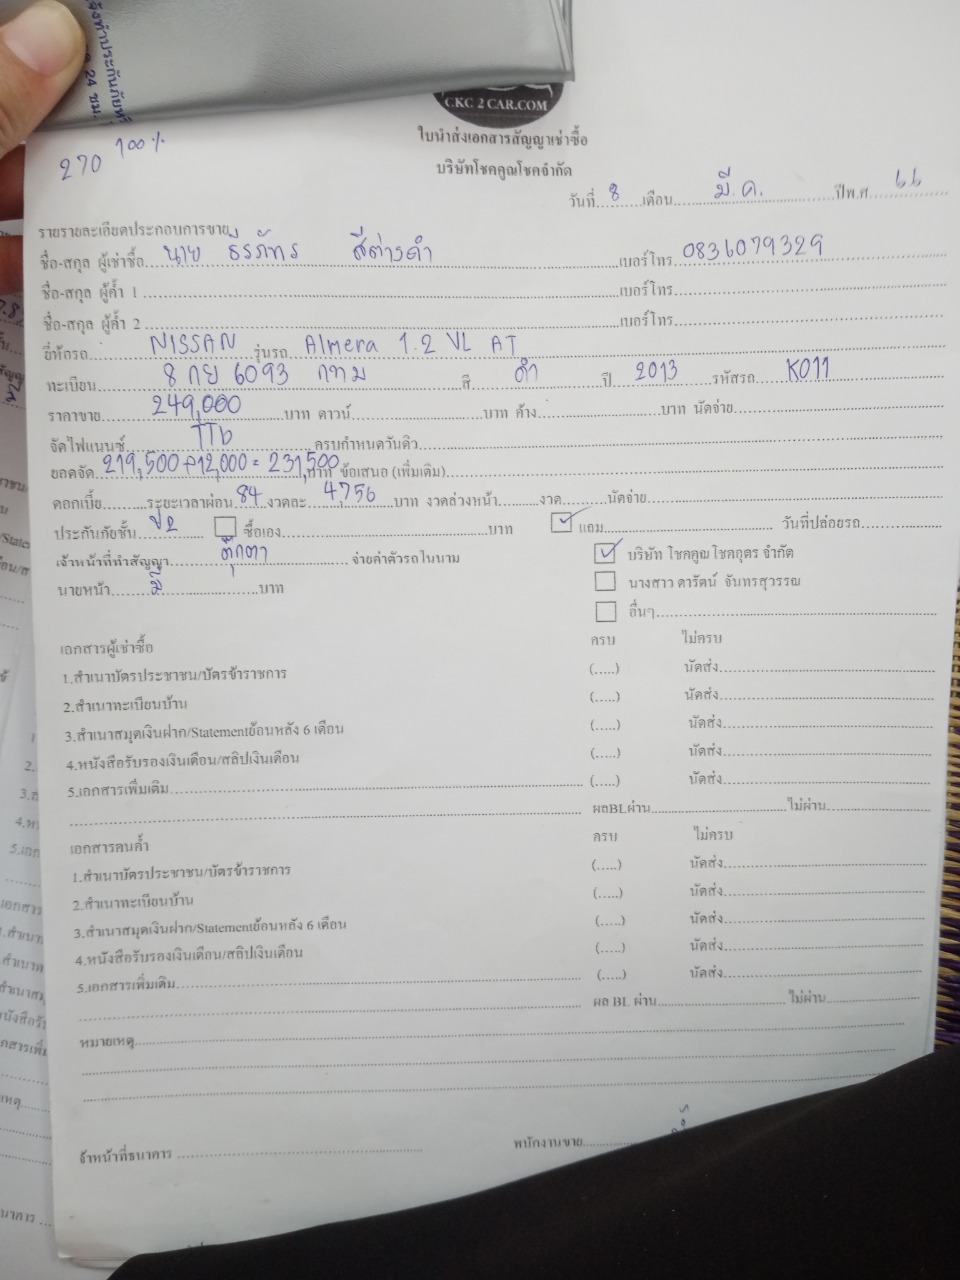 CKC 2 CAR.COM
ใบนำส่งเอกสารสัญญาเช่าซื้อ
บริษัทโชคคูณโชคจำกัด
270 100%
วันที่ 8 เดือน มี.ค. ปีพ.ศ 66
รายรายละเอียดประกอบการขาย
ชื่อ-สกุล ผู้เช่าซื้อ นาย ธีรภัทร สีต่างคำ เบอร์โทร 0836079329
ชื่อ-สกุล ผู้ค้ำ 1 เบอร์โทร
ชื่อ-สกุล ผู้ค้ำ 2 เบอร์โทร
ยี่ห้อรถ NISSAN รุ่นรถ Almera 1.2 VL AT
ทะเบียน 8 กย 6093 กทม สี ดำ ปี 2013 รหัสรถ K011
ราคาขาย 249,000 บาท ดาวน์ บาท ค้าง บาท นัดจ่าย
จัดไฟแนนซ์ TTb ครบกำหนดวันดิว
ยอดจัด 219,500+12,000= 231,500 บาท ข้อเสนอ (เพิ่มเติม)
ดอกเบี้ย ระยะเวลาผ่อน 84 งวดละ 4,756 บาท งวดล่วงหน้า งวด นัดจ่าย
ประกันภัยชั้น ป2 ซื้อเอง บาท แถม วันที่ปล่อยรถ
เจ้าหน้าที่ทำสัญญา ตุ๊กตา จ่ายค่าตัวรถในนาม บริษัท โชคคูณ โชคอุดร จำกัด
นายหน้า มี บาท นางสาว ดารัตน์ จันทรสุวรรณ
อื่นๆ
เอกสารผู้เช่าซื้อ ครบ ไม่ครบ
1.สำเนาบัตรประชาชน/บัตรข้าราชการ (.....) นัดส่ง
2.สำเนาทะเบียนบ้าน (.....) นัดส่ง
3.สำเนาสมุดเงินฝาก/Statementย้อนหลัง 6 เดือน (.....) นัดส่ง
4.หนังสือรับรองเงินเดือน/สลิปเงินเดือน (.....) นัดส่ง
5.เอกสารเพิ่มเติม (.....) นัดส่ง
ผลBLผ่าน ไม่ผ่าน
เอกสารคนค้ำ ครบ ไม่ครบ
1.สำเนาบัตรประชาชน/บัตรข้าราชการ (.....) นัดส่ง
2.สำเนาทะเบียนบ้าน (.....) นัดส่ง
3.สำเนาสมุดเงินฝาก/Statementย้อนหลัง 6 เดือน (.....) นัดส่ง
4.หนังสือรับรองเงินเดือน/สลิปเงินเดือน (.....) นัดส่ง
5.เอกสารเพิ่มเติม (.....) นัดส่ง
ผล BL ผ่าน ไม่ผ่าน
หมายเหตุ
จ้าหน้าที่ธนาคาร พนักงานขาย